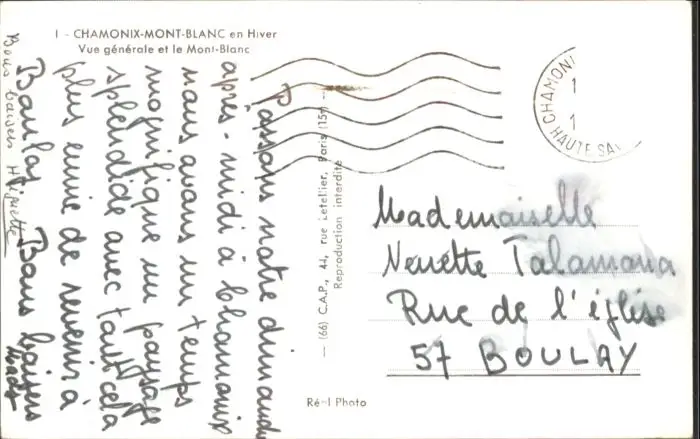 1 - CHAMONIX-MONT-BLANC en Hiver
Vue générale et le Mont-Blanc
Passons notre dimanche
après-midi à Chamonix
nous avons un temps
magnifique un paysage
splendide avec tout cela
plus envie de revenir à
Boulay Bons baisers
Bons baisers Huguette
CHAMONI
1
1
HAUTE SA
— (66) C.A.P., 44, rue Letellier, Paris (15e) —
Reproduction interdite
Mademoiselle
Talamona
Rue de l'église
57 BOULAY
Ré-l Photo